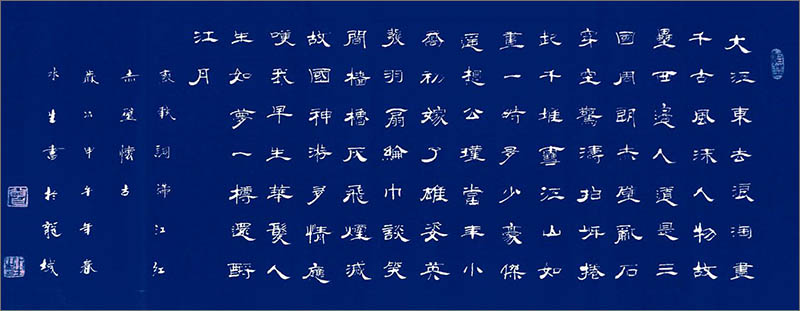 大江東去浪淘盡
千古風流人物故
壘西邊人道是三
國周郎赤壁亂石
穿空驚濤拍岸捲
起千堆雪江山如
畫一時多少豪傑
遙想公瑾當年小
喬初嫁了雄姿英
發羽扇綸巾談笑
間檣櫓灰飛煙滅
故國神游多情應
嘆我早生華髮人
生如夢一樽還酹
江月
軾詞滿江紅
赤壁懷古
歲次甲午年春
水生書於龍城